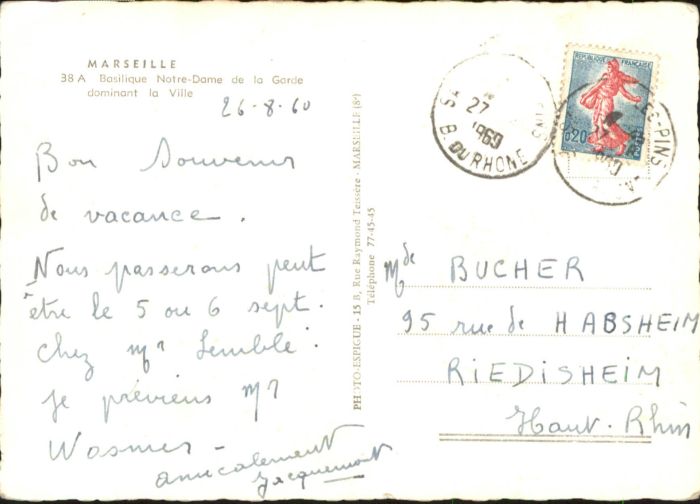 MARSEILLE
38 A Basilique Notre-Dame de la Garde
dominant la Ville
26-8-60
Bon Souvenir
de vacance.
Nous passerons peut
être le 5 ou 6 sept.
chez Mr Semblé :
je préviens Mr
Wasmer -
amicalement
Jacquemont
PHOTO-ESPIGUE - 15 B, Rue Raymond Teissère - MARSEILLE (8e)
Téléphone 77-45-45
27
1960
B. DU RHONE
REPUBLIQUE FRANÇAISE
0,20
LES-PINS
1960
Mde BUCHER
95 rue de HABSHEIM
RIEDISHEIM
Haut-Rhin